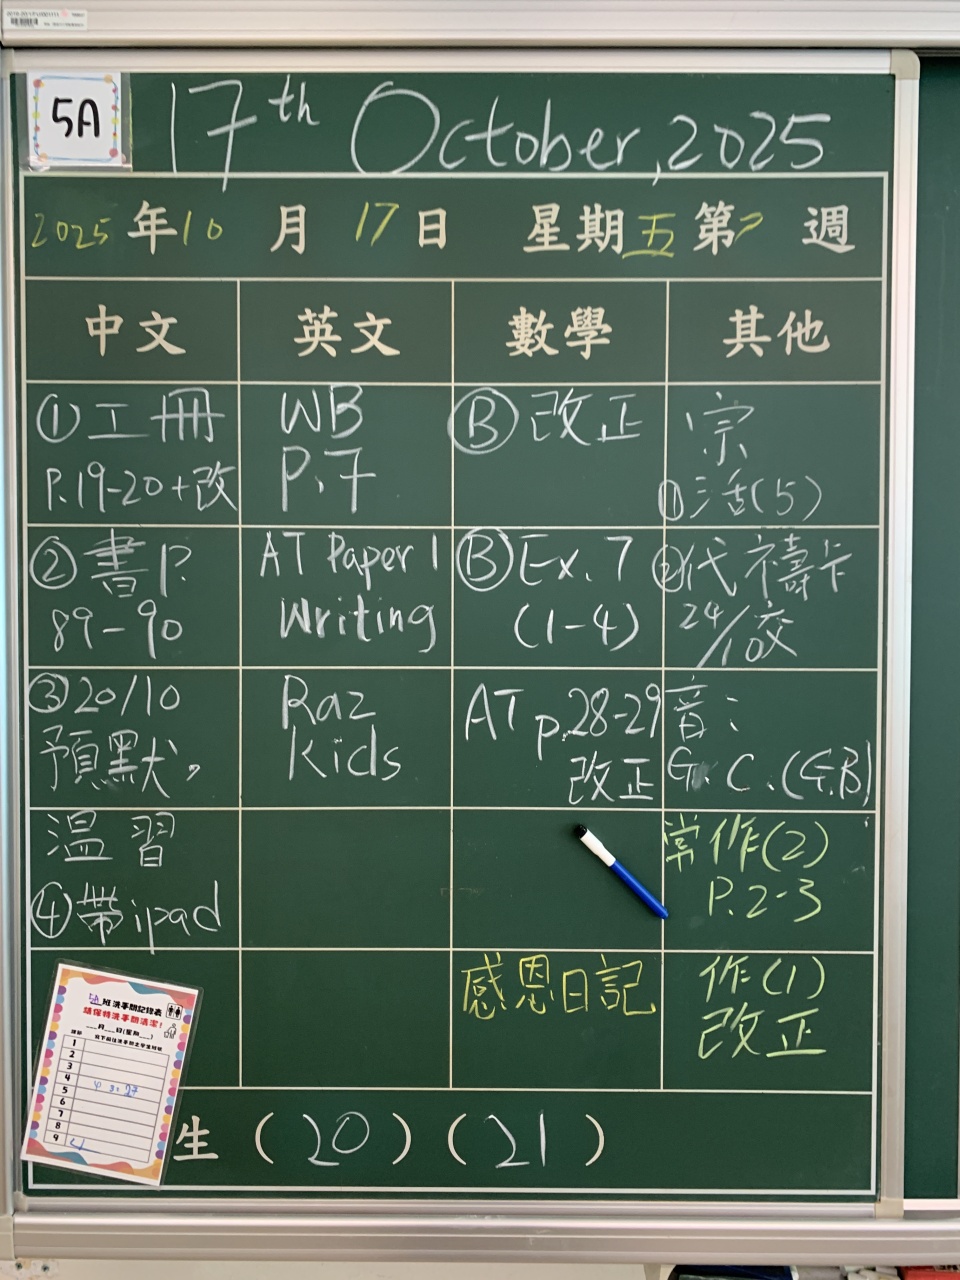 5A
17th October, 2025
2025年10月17日 星期五 第7週
中文 英文 數學 其他
①工冊
P.19-20+改
WB
P.7
Ⓑ改正
宗
①活(5)
②書P.
89-90
AT Paper 1
Writing
ⒷEx.7
(1-4)
②代禱卡
24/10交
③20/10
預默,
Raz
Kids
AT p.28-29
改正
音:
G.C.(G.B)
溫習
④帶ipad
常作(2)
P.2-3
感恩日記
作(1)
改正
5A班洗手間記錄表
請保持洗手間清潔!
___月___日(星期___)
1
2
3
4
5
6
7
8
9
生 (20) (21)